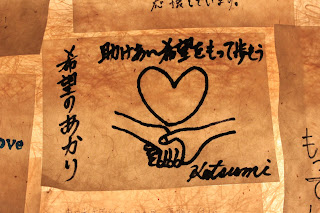 応援しています。
助け合い希望をもって歩こう
希望のあかり
Katsumi
ove
もっ